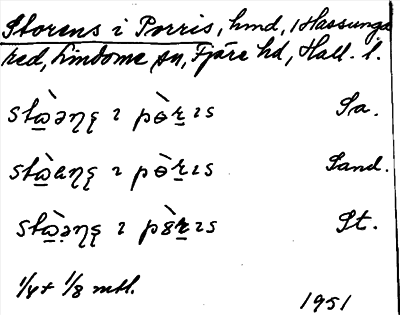 Storens i Porris, hmd, 1 Hassunga
red, Lindome sn, Fjäre hd, Hall. l.
stɷ̀əƞʂ ı pɵ̀rıs Sa.
stɷ̀aƞʂ ı pɵ̀rıs Sand.
stɷ̀əƞʂ ı pȣ̀rıs St.
1/4 + 1/8 mtl. 1951